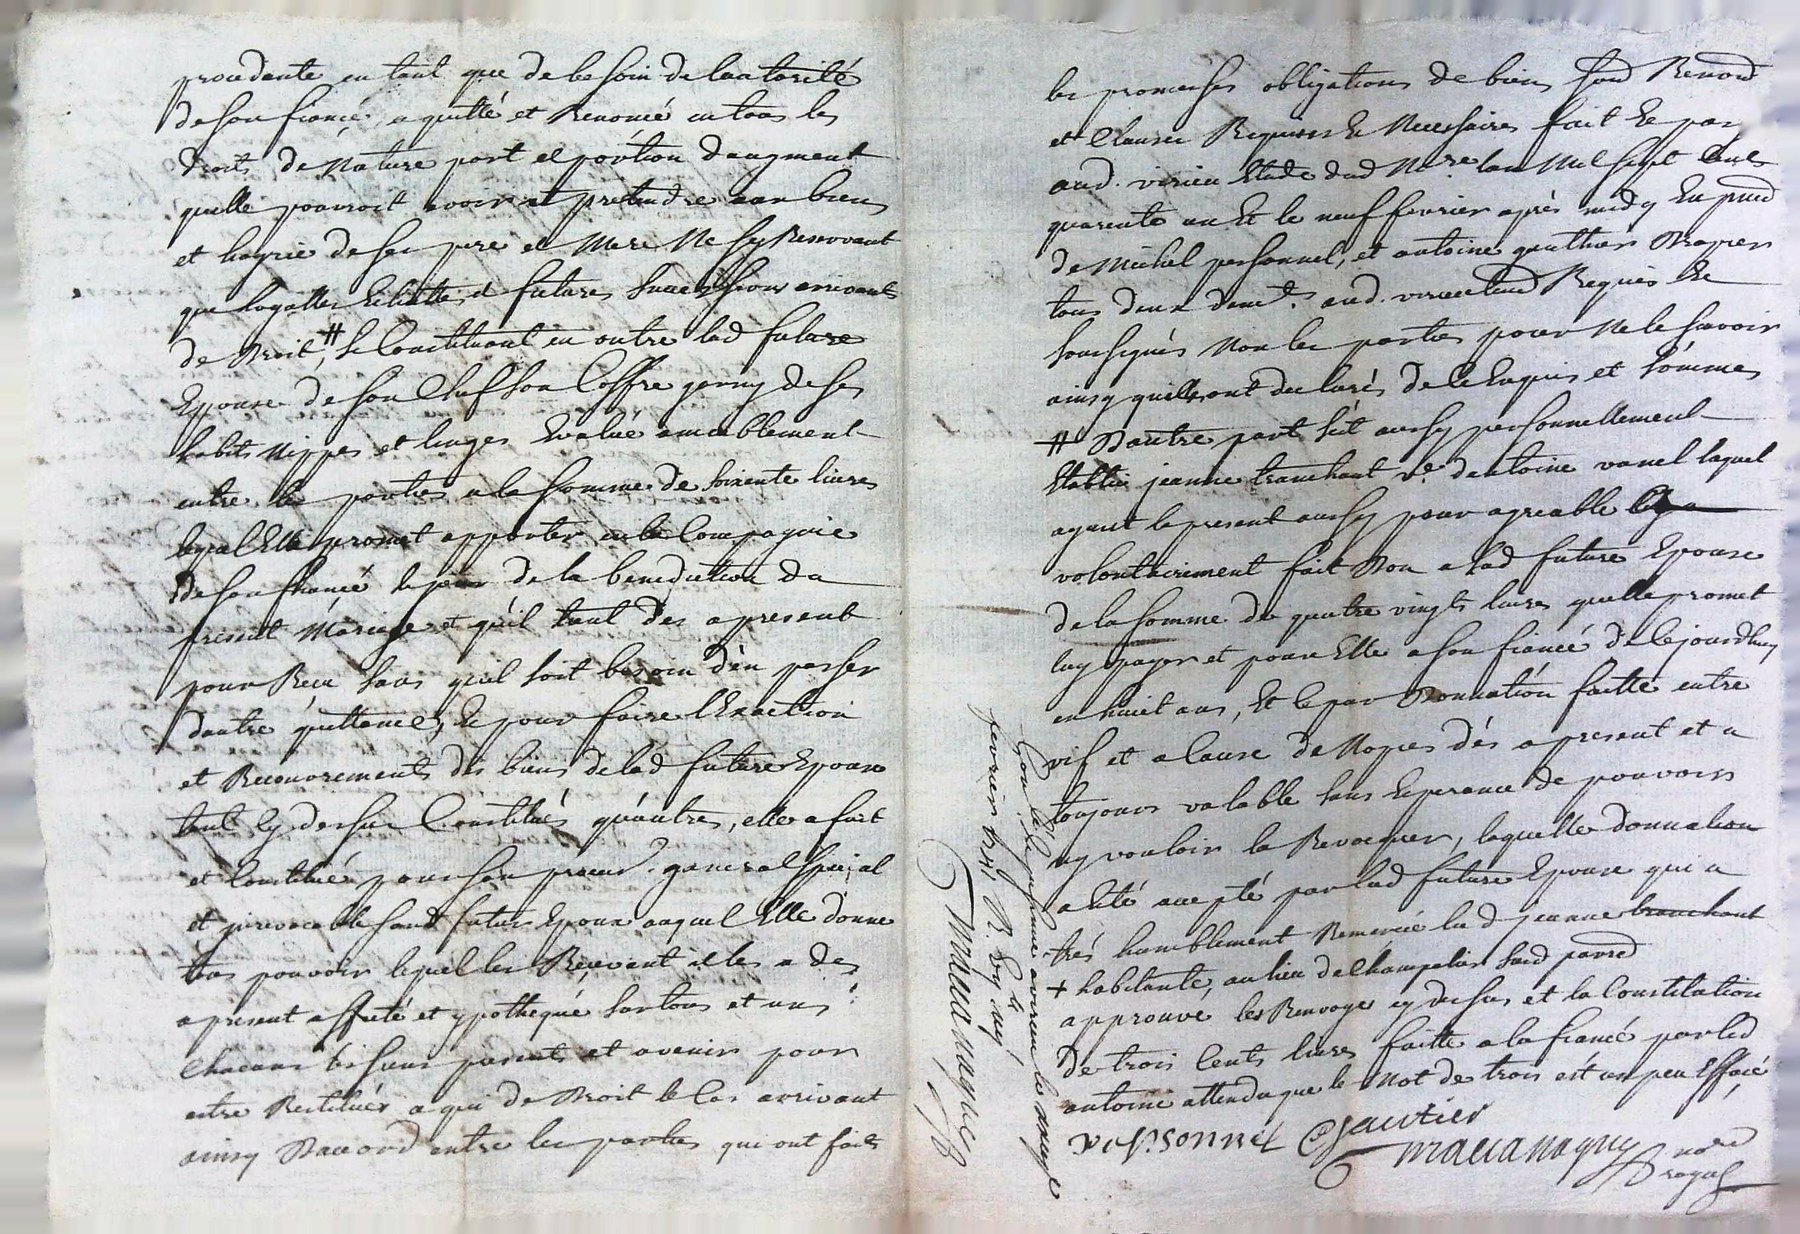 procedante en tant que de besoin de lautorité
de son fiancé, a quitté et Renoncé en tous les
droits de Nature part et portion daugment
quelle pouvroit avoir et pretendre aux biens
et hoyrie de ses pere et Mere Ne sy Reservant
que loyalle Echutte, et futures successions arrivant
de Droit # se Constituant en outre lad future
Epouse de son Chef son Coffre garny de ses
habits Nippes et linges Evalué amiablement
entre les parties a la somme de soixente livres
lequel Elle promet apporter en la Compagnie
de son fiancé le jour de la benediction du
present Mariage et qu'il tient des apresent
pour Receu sans quil soit besoin d'en passer
dautre quittance, Et pour faire l'Exaction
et Recouvrements des biens de lad future Epouse
tant cy dessus Constitués qu'autres, elle a fait
et Constitué pour son procur.r general special
et jrrevocable sond futur Epoux auquel Elle donne
tous pouvoir lequel les Recevant il les a des
apresent affecté et ypothequé sur tous et uns
Chacuns ses biens presents et avenir pour
estre Restitués a qui de Droit le Cas arrivant
ainsy Daccord entre les parties qui ont faits
les promesses obligations de biens soud Renond
et Clauses Requises Et Necessaires fait Et pas
aud. virieu Etude dud N.re lan Mil sept Cent
quarente un Et le neuf fevrier après midy En pnce
de Michel personnel, et antoine gauthier Drapier
tous deux dem.ts aud. virieu tem Requis Et
soussignés Non les parties pour Ne le savoir
ainsy quils ont declarés de ce Enquis et sommés
# Dautre part s'est aussy personnellement
Establie jeanne tranchant v.e dantoine vanel laquel
ayant le present aussy pour agreable
volontairement fait Don a lad future Epouse
de la somme de quatre vingts livres quelle promet
luy payer et pour Elle a son fiancé de Cejourdhuy
en huict ans, Et Ce par Donnation faitte entre
vif et a Cause de Nopces dés apresent et a
toujours valable sans Esperance de pouvoir
ny vouloir la Revocquer, laquelle donnation
a Eté acceptée par lad future Epouse qui a
trés humblement Remercié lad jeanne tranchant
+ habitante, au lieu de Champelin sud parred
approuve les Renvoyes cy dessus et la Constitution
de trois Cents livres faitte a la fiancé par led
antoine attendu que le Mot de trois ést un peu Effacé
Personnel Gautier
Maccanagny no.re
royal
Con.lé a virieu le neufe
fevrier 1741 R.
Maccanagny